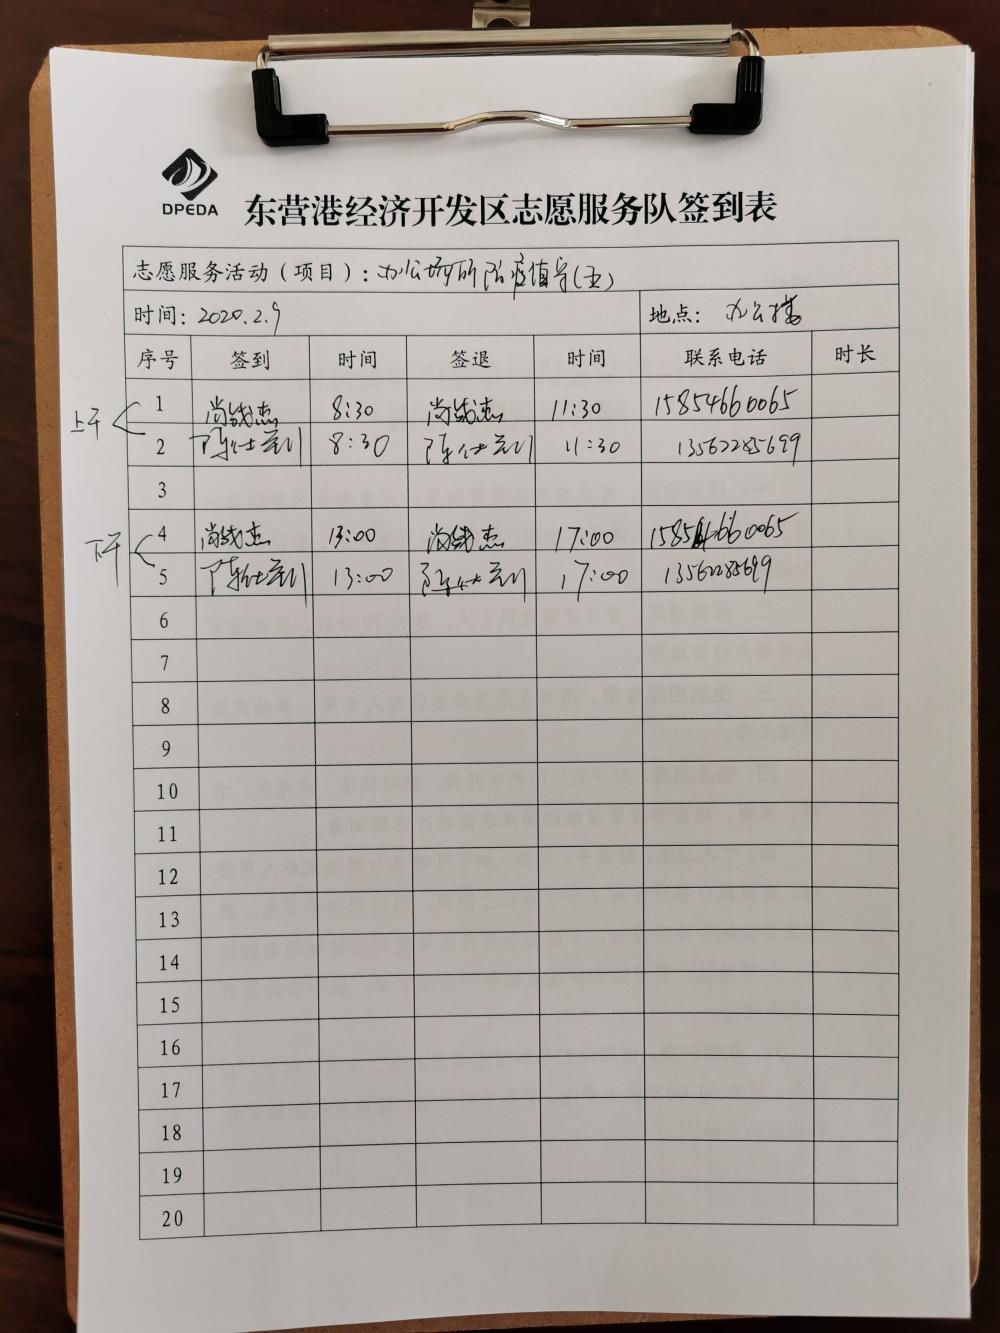 DPEDA
东营港经济开发区志愿服务队签到表
志愿服务活动（项目）：办公场所防疫值守(五)
时间：2020.2.9 地点：办公楼
序号 签到 时间 签退 时间 联系电话 时长
上午 1 尚战杰 8:30 尚战杰 11:30 15854660065
2 陈仕训 8:30 陈仕训 11:30 13562285699
3
下午 4 尚战杰 13:00 尚战杰 17:00 15854660065
5 陈仕训 13:00 陈仕训 17:00 13562285699
6
7
8
9
10
11
12
13
14
15
16
17
18
19
20